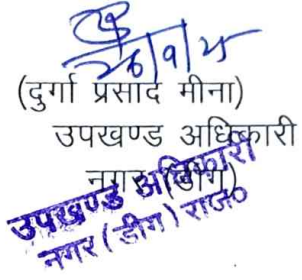 26/9/25
(दुर्गा प्रसाद मीना)
उपखण्ड अधिकारी
नगर (डीग)
उपखण्ड अधिकारी
नगर (डीग) राज०